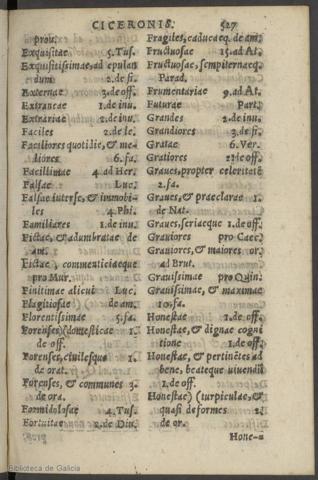 CICERONIS. 527
prou.
Exquisitae 5. Tus.
Exquisitissimae, ad epulan
dum 2. de fi.
Externae 3. de off.
Extraneae 1. de inu.
Extrariae 2. de inu.
Faciles 2. de le.
Faciliores quotidie, & me-
diores 6. fa.
Facillimae 4. ad Her.
Falsae Luc.
Falsae inter se, & immobi-
les 4. Phi.
Familiares 1. de inu.
Fictae, & adumbratae de
am.
Fictae, commenticiaeque
pro Mur.
Finitimae alicui Luc.
Flagitiosae de am.
Florentissimae 5. fa.
Forenses) (domesticae 1.
de off.
Forenses, ciuilesque 1.
de orat.
Forenses, & communes 3.
de ora.
Formidolosae 4. Tus.
Fortuitae 2. de Diu.
Fragiles, caducaeq. de am.
Fructuosae 15. ad At.
Fructuosae, sempiternaeq.
Parad.
Frumentariae 9. ad At.
Futurae Part.
Grandes 2. de inu.
Grandiores 3. de fi.
Gratae 6. Ver.
Gratiores 2. de off.
Graues, propter celeritatē
2. fa.
Graues, & praeclarae 1.
de Nat.
Graues, seriaeque 1. de off.
Grauiores pro Caec.
Grauiores, & maiores or.
ad Brut.
Grauissimae pro Quin.
Grauissimae, & maximae
10. fa.
Honestae 1. de off.
Honestae, & dignae cogni
tione 1. de off.
Honestae, & pertinētes ad
bene, beateque uiuendū
1. de off.
Honestae) (turpiculae, &
quasi deformes 2.
de or.
Hone-
Biblioteca de Galicia